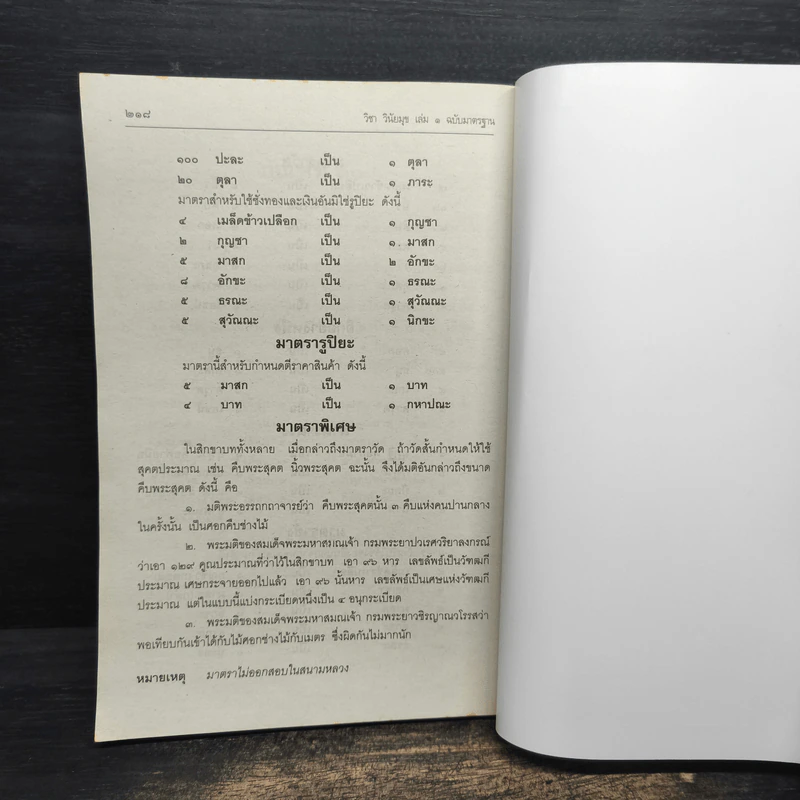 ๒๑๘ วิชา วินัยมุข เล่ม ๑ ฉบับมาตรฐาน
๑๐๐ ปะละ เป็น ๑ ตุลา
๒๐ ตุลา เป็น ๑ ภาระ
มาตราสำหรับใช้ชั่งทองและเงินอันมิใช่รูปิยะ ดังนี้
๔ เมล็ดข้าวเปลือก เป็น ๑ กุญชา
๒ กุญชา เป็น ๑ มาสก
๕ มาสก เป็น ๒ อักขะ
๘ อักขะ เป็น ๑ ธรณะ
๕ ธรณะ เป็น ๑ สุวัณณะ
๕ สุวัณณะ เป็น ๑ นิกขะ
มาตรารูปิยะ
มาตรานี้สำหรับกำหนดตีราคาสินค้า ดังนี้
๕ มาสก เป็น ๑ บาท
๔ บาท เป็น ๑ กหาปณะ
มาตราพิเศษ
ในสิกขาบททั้งหลาย เมื่อกล่าวถึงมาตราวัด ถ้าวัดสั้นกำหนดให้ใช้
สุคตประมาณ เช่น คืบพระสุคต นิ้วพระสุคต ฉะนั้น จึงได้มติอันกล่าวถึงขนาด
คืบพระสุคต ดังนี้ คือ
๑. มติพระอรรถกถาจารย์ว่า คืบพระสุคตนั้น ๓ คืบแห่งคนปานกลาง
ในครั้งนั้น เป็นศอกคืบช่างไม้
๒. พระมติของสมเด็จพระมหาสมณเจ้า กรมพระยาปวเรศวริยาลงกรณ์
ว่าเอา ๑๒๙ คูณประมาณที่ว่าไว้ในสิกขาบท เอา ๙๖ หาร เลขลัพธ์เป็นวัฑฒกี
ประมาณ เศษกระจายออกไปแล้ว เอา ๙๖ นั้นหาร เลขลัพธ์เป็นเศษแห่งวัฑฒกี
ประมาณ แต่ในแบบนี้แบ่งกระเบียดหนึ่งเป็น ๔ อนุกระเบียด
๓. พระมติของสมเด็จพระมหาสมณเจ้า กรมพระยาวชิรญาณวโรรสว่า
พอเทียบกันเข้าได้กับไม้ศอกช่างไม้กับเมตร ซึ่งผิดกันไม่มากนัก
หมายเหตุ มาตราไม่ออกสอบในสนามหลวง